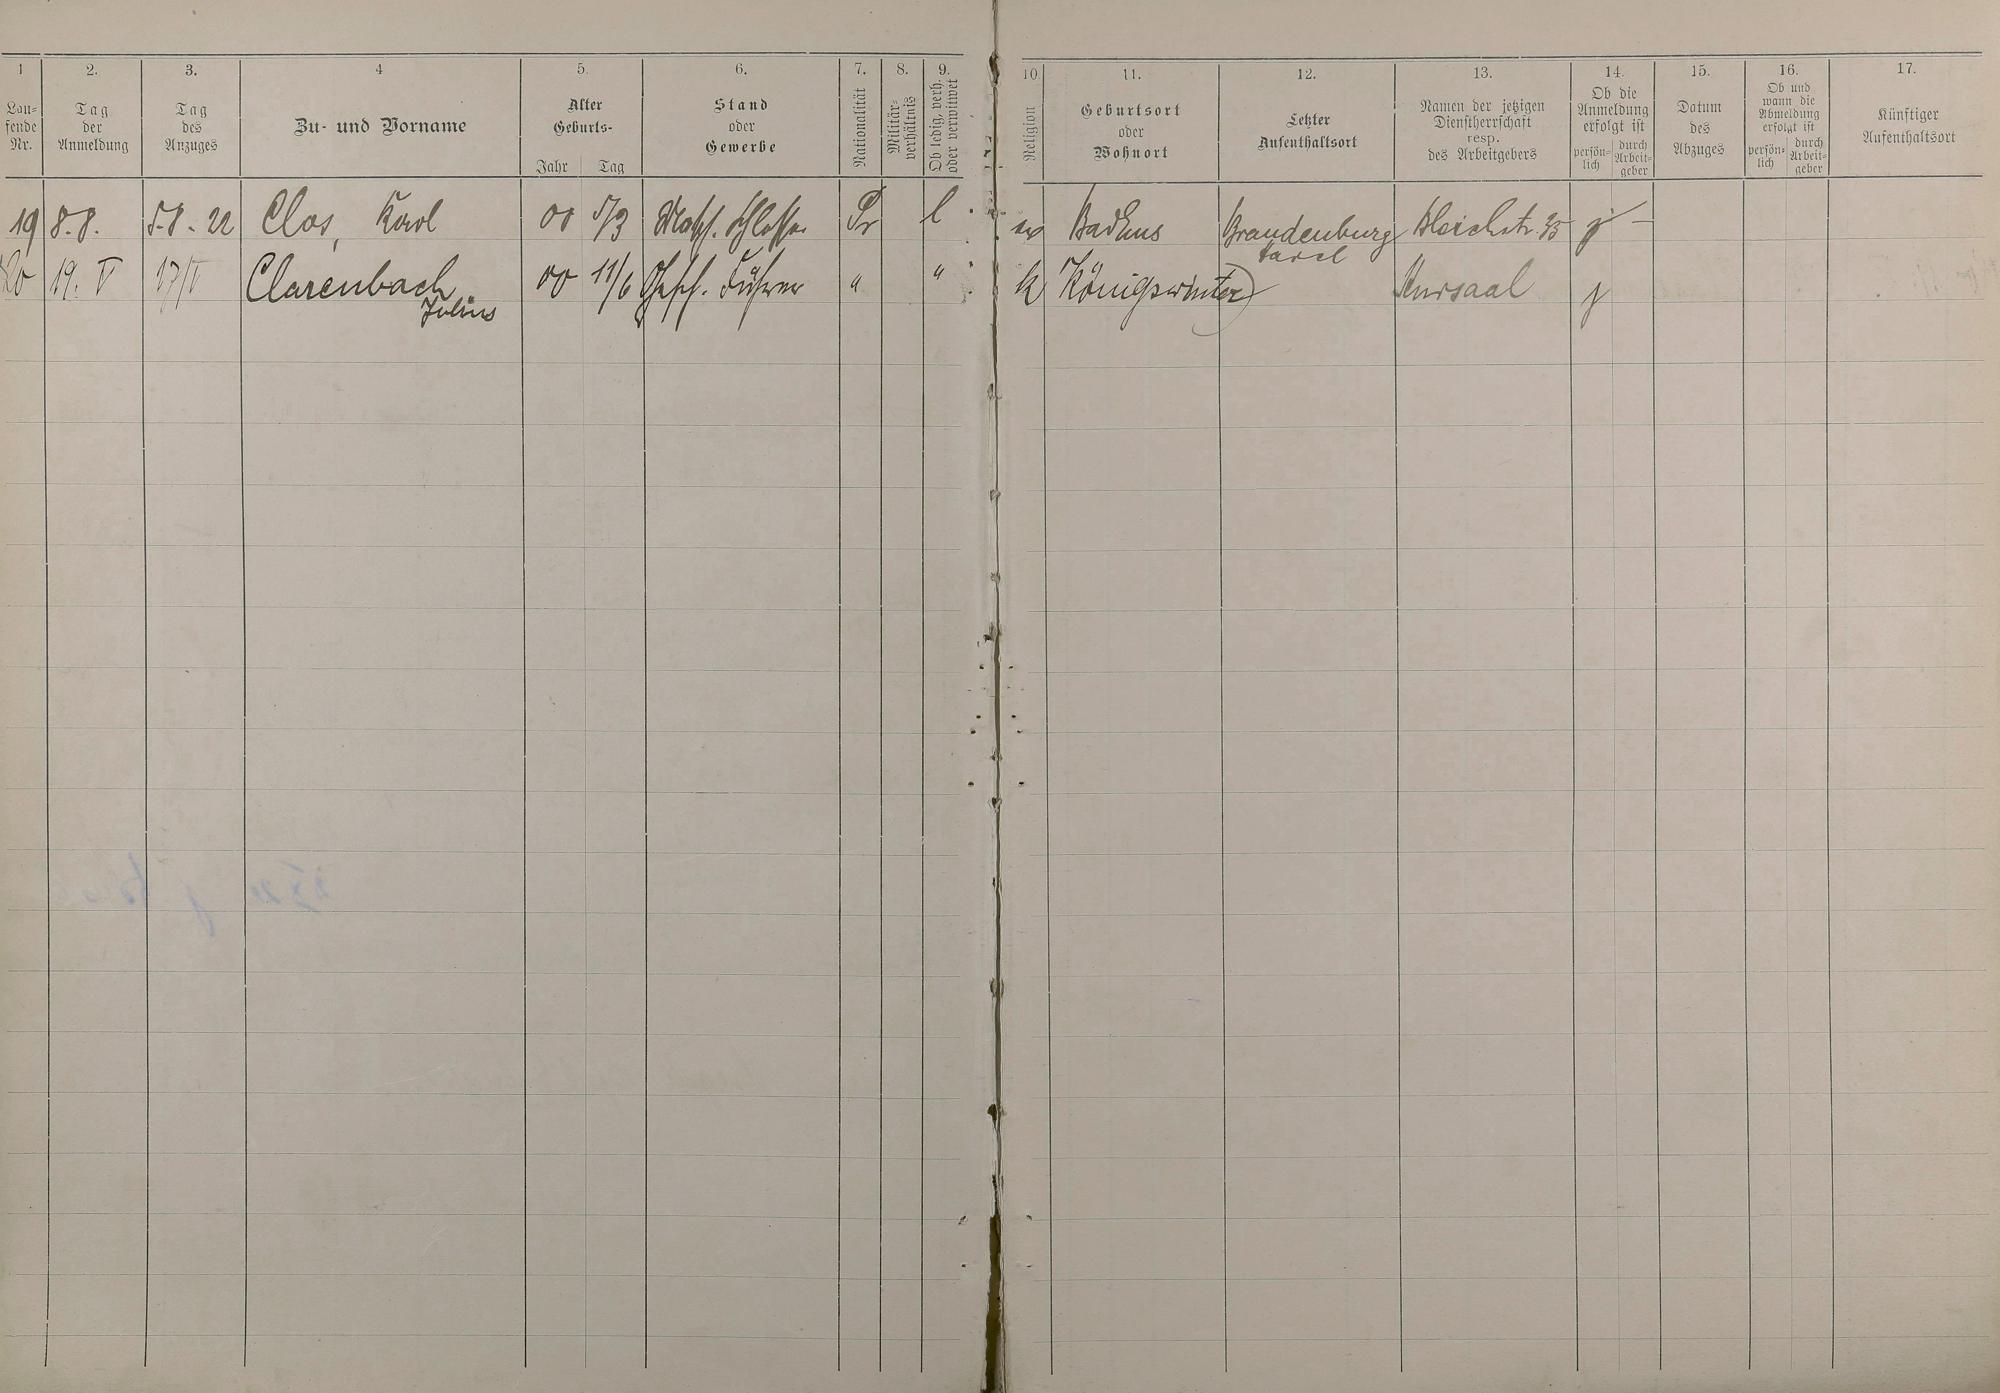 1 2. 3. 4 5. 6. 7. 8. 9. 10. 11. 12. 13. 14. 15. 16. 17.
Lau-
fende
Nr.
Tag
der
Anmeldung
Tag
des
Anzuges
Zu- und Vorname
Alter
Geburts-
Jahr Tag
Stand
oder
Gewerbe
Nationalität
Militär-
verhältnis
Ob ledig, verh.
oder verwittwet
Religion
Geburtsort
oder
Wohnort
Letzter
Aufenthaltsort
Namen der jetzigen
Dienstherrschaft
resp.
des Arbeitgebers
Ob die
Anmeldung
erfolgt ist
persön-
lich
durch
Arbeit-
geber
Datum
des
Abzuges
Ob und
wann die
Abmeldung
erfolgt ist
persön-
lich
durch
Arbeit-
geber
Künftiger
Aufenthaltsort
19 8.8. 5.8.22 Clos, Karl 00 5/3 Masch. Schlosser Pr l. ev Bad Ems Brandenburg Bleichstr. 35 j –
Havel
20 19. V 17/V Clarenbach 00 11/6 Gesch. Führer " " k Königswinter Kursaal j
Julius